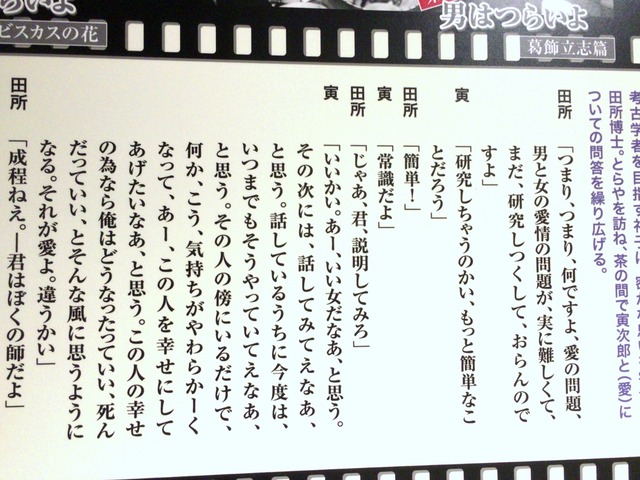 男はつらいよ
葛飾立志篇
らいよ
ビスカスの花
田所博士。とらやを訪ね、茶の間で寅次郎と〈愛〉に
ついての問答を繰り広げる。
田所「つまり、つまり、何ですよ、愛の問題、
男と女の愛情の問題が、実に難しくて、
まだ、研究しつくして、おらんので
すよ」
寅「研究しちゃうのかい、もっと簡単なこ
とだろう」
田所「簡単!」
寅「常識だよ」
田所「じゃあ、君、説明してみろ」
寅「いいかい。あー、いい女だなあ、と思う。
その次には、話してみてえなあ、
と思う。話しているうちに今度は、
いつまでもそうやっていてえなあ、
と思う。その人の傍にいるだけで、
何か、こう、気持ちがやわらかーく
なって、あー、この人を幸せにして
あげたいなあ、と思う。この人の幸せ
の為なら俺はどうなったっていい、死ん
だっていい、とそんな風に思うように
なる。それが愛よ。違うかい」
田所「成程ねえ。―君はぼくの師だよ」